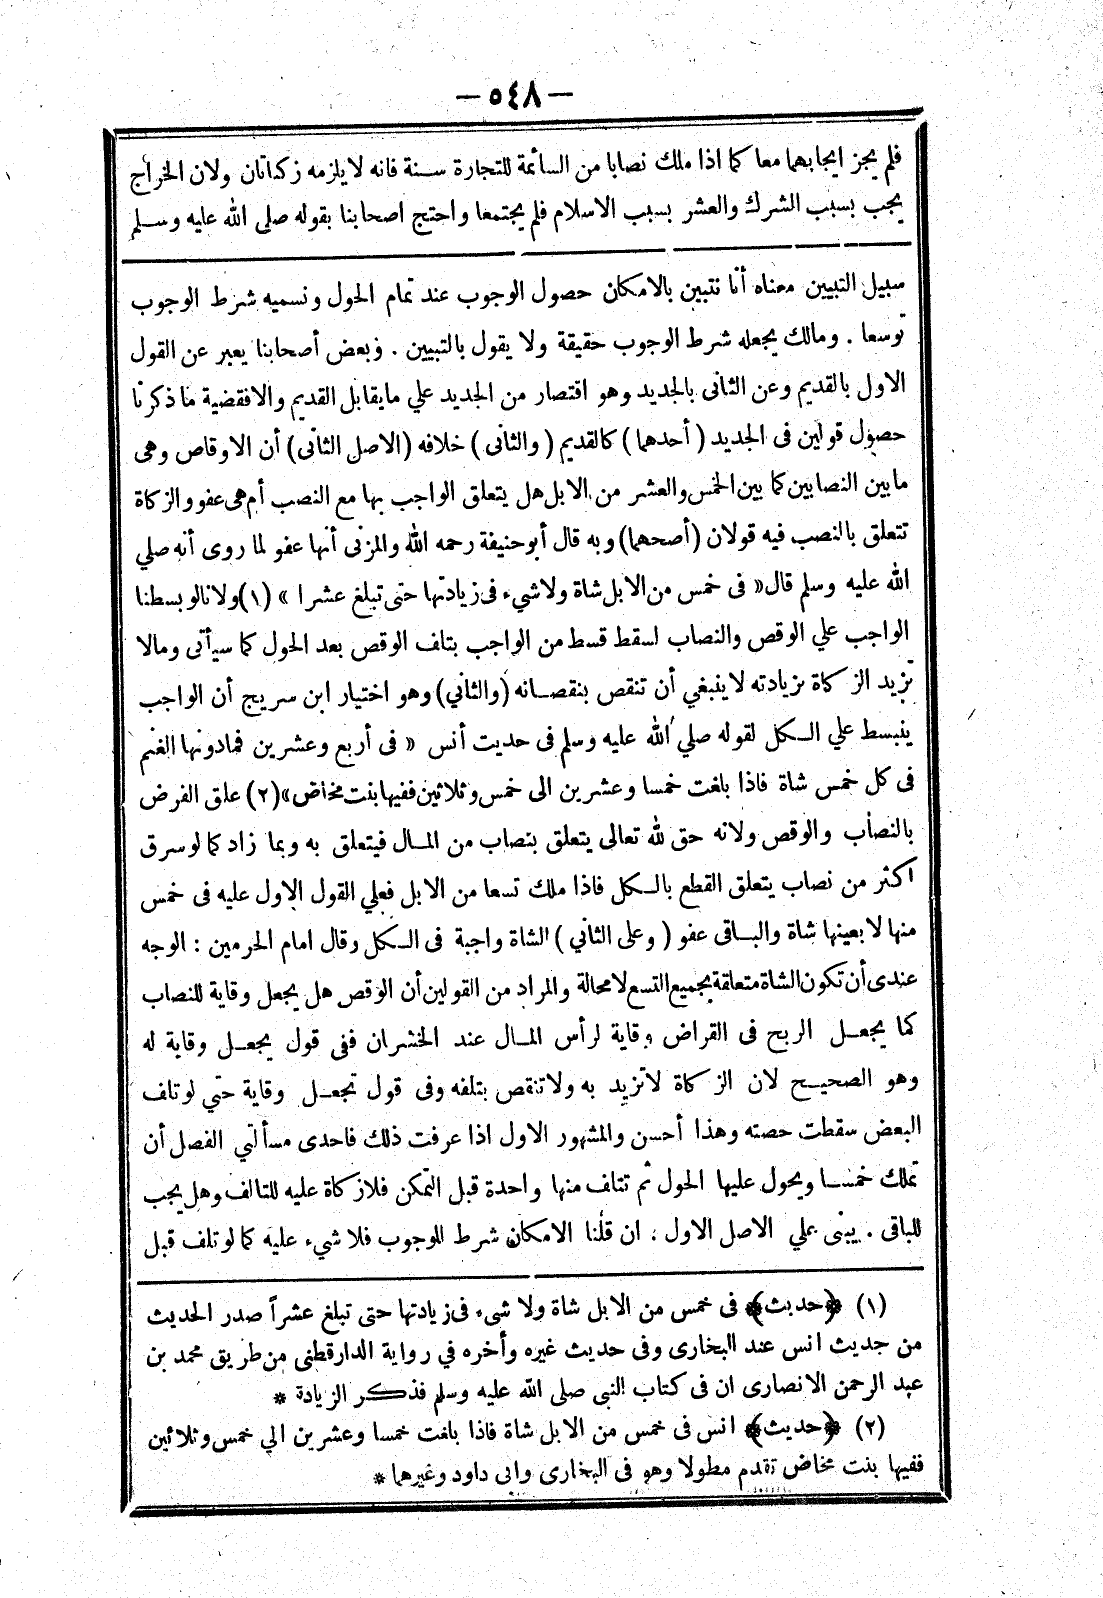 — ٥٤٨ —
فلم يجز ايجابهما معا كما اذا ملك نصابا من السائمة للتجارة سنة فانه لا يلزمه زكاتان ولان الخراج
يجب بسبب الشرك والعشر بسبب الاسلام فلم يجتمعا واحتج اصحابنا بقوله صلى الله عليه وسلم
سبيل التبيين معناه أنا نتبين بالامكان حصول الوجوب عند تمام الحول ونسميه شرط الوجوب
توسعا . ومالك يجعله شرط الوجوب حقيقة ولا يقول بالتبيين . وبعض أصحابنا يعبر عن القول
الاول بالقديم وعن الثانى بالجديد وهو اقتصار من الجديد علي مايقابل القديم والافقضية ماذكرنا
حصول قولين فى الجديد ( أحدهما ) كالقديم ( والثانى ) خلافه (الاصل الثانى) أن الاوقاص وهى
مابين النصابين كما بين الخمس والعشر من الابل هل يتعلق الواجب بها مع النصب أم هى عفو والزكاة
تتعلق بالنصب فيه قولان (أصحهما) وبه قال أبوحنيفة رحمه الله والمزنى أنها عفو لما روى أنه صلي
الله عليه وسلم قال « فى خمس من الابل شاة ولاشيء فى زيادتها حتى تبلغ عشرا » (١) ولانا لو بسطنا
الواجب علي الوقص والنصاب لسقط قسط من الواجب بتلف الوقص بعد الحول كما سيأتى ومالا
تزيد الزكاة بزيادته لاينبغي أن تنقص بنقصانه (والثاني) وهو اختيار ابن سريج أن الواجب
ينبسط علي الكل لقوله صلي الله عليه وسلم فى حديث أنس « فى أربع وعشرين فمادونها الغنم
فى كل خمس شاة فاذا بلغت خمسا وعشرين الى خمس وثلاثين ففيها بنت مخاض» (٢) علق الفرض
بالنصاب والوقص ولانه حق لله تعالى يتعلق بنصاب من المال فيتعلق به وبما زاد كما لو سرق
اكثر من نصاب يتعلق القطع بالكل فاذا ملك تسعا من الابل فعلي القول الاول عليه فى خمس
منها لا بعينها شاة والباقى عفو ( وعلى الثاني ) الشاة واجبة فى الكل وقال امام الحرمين : الوجه
عندى أن تكون الشاة متعلقة بجميع التسع لا محالة والمراد من القولين أن الوقص هل يجعل وقاية للنصاب
كما يجعل الربح فى القراض وقاية لرأس المال عند الخسران ففى قول يجعل وقاية له
وهو الصحيح لان الزكاة لاتزيد به ولاتنقص بتلفه وفى قول تجعل وقاية حتي لو تلف
البعض سقطت حصته وهذا أحسن والمشهور الاول اذا عرفت ذلك فاحدى مسألتي الفصل أن
تملك خمسا ويحول عليها الحول ثم تتلف منها واحدة قبل التمكن فلا زكاة عليه للتالف وهل يجب
للباقى . يبنى علي الاصل الاول ، ان قلنا الامكان شرط للوجوب فلا شيء عليه كما لو تلف قبل
(١) ﴿حديث﴾ فى خمس من الابل شاة ولا شيء فى زيادتها حتى تبلغ عشراً صدر الحديث
من حديث انس عند البخارى وفى حديث غيره وأخره في رواية الدارقطنى من طريق محمد بن
عبد الرحمن الانصارى ان فى كتاب النبى صلى الله عليه وسلم فذكر الزيادة *
(٢) ﴿حديث﴾ انس فى خمس من الابل شاة فاذا بلغت خمسا وعشرين الي خمس وثلاثين
ففيها بنت مخاض تقدم مطولا وهو فى البخارى وابى داود وغيرهما *